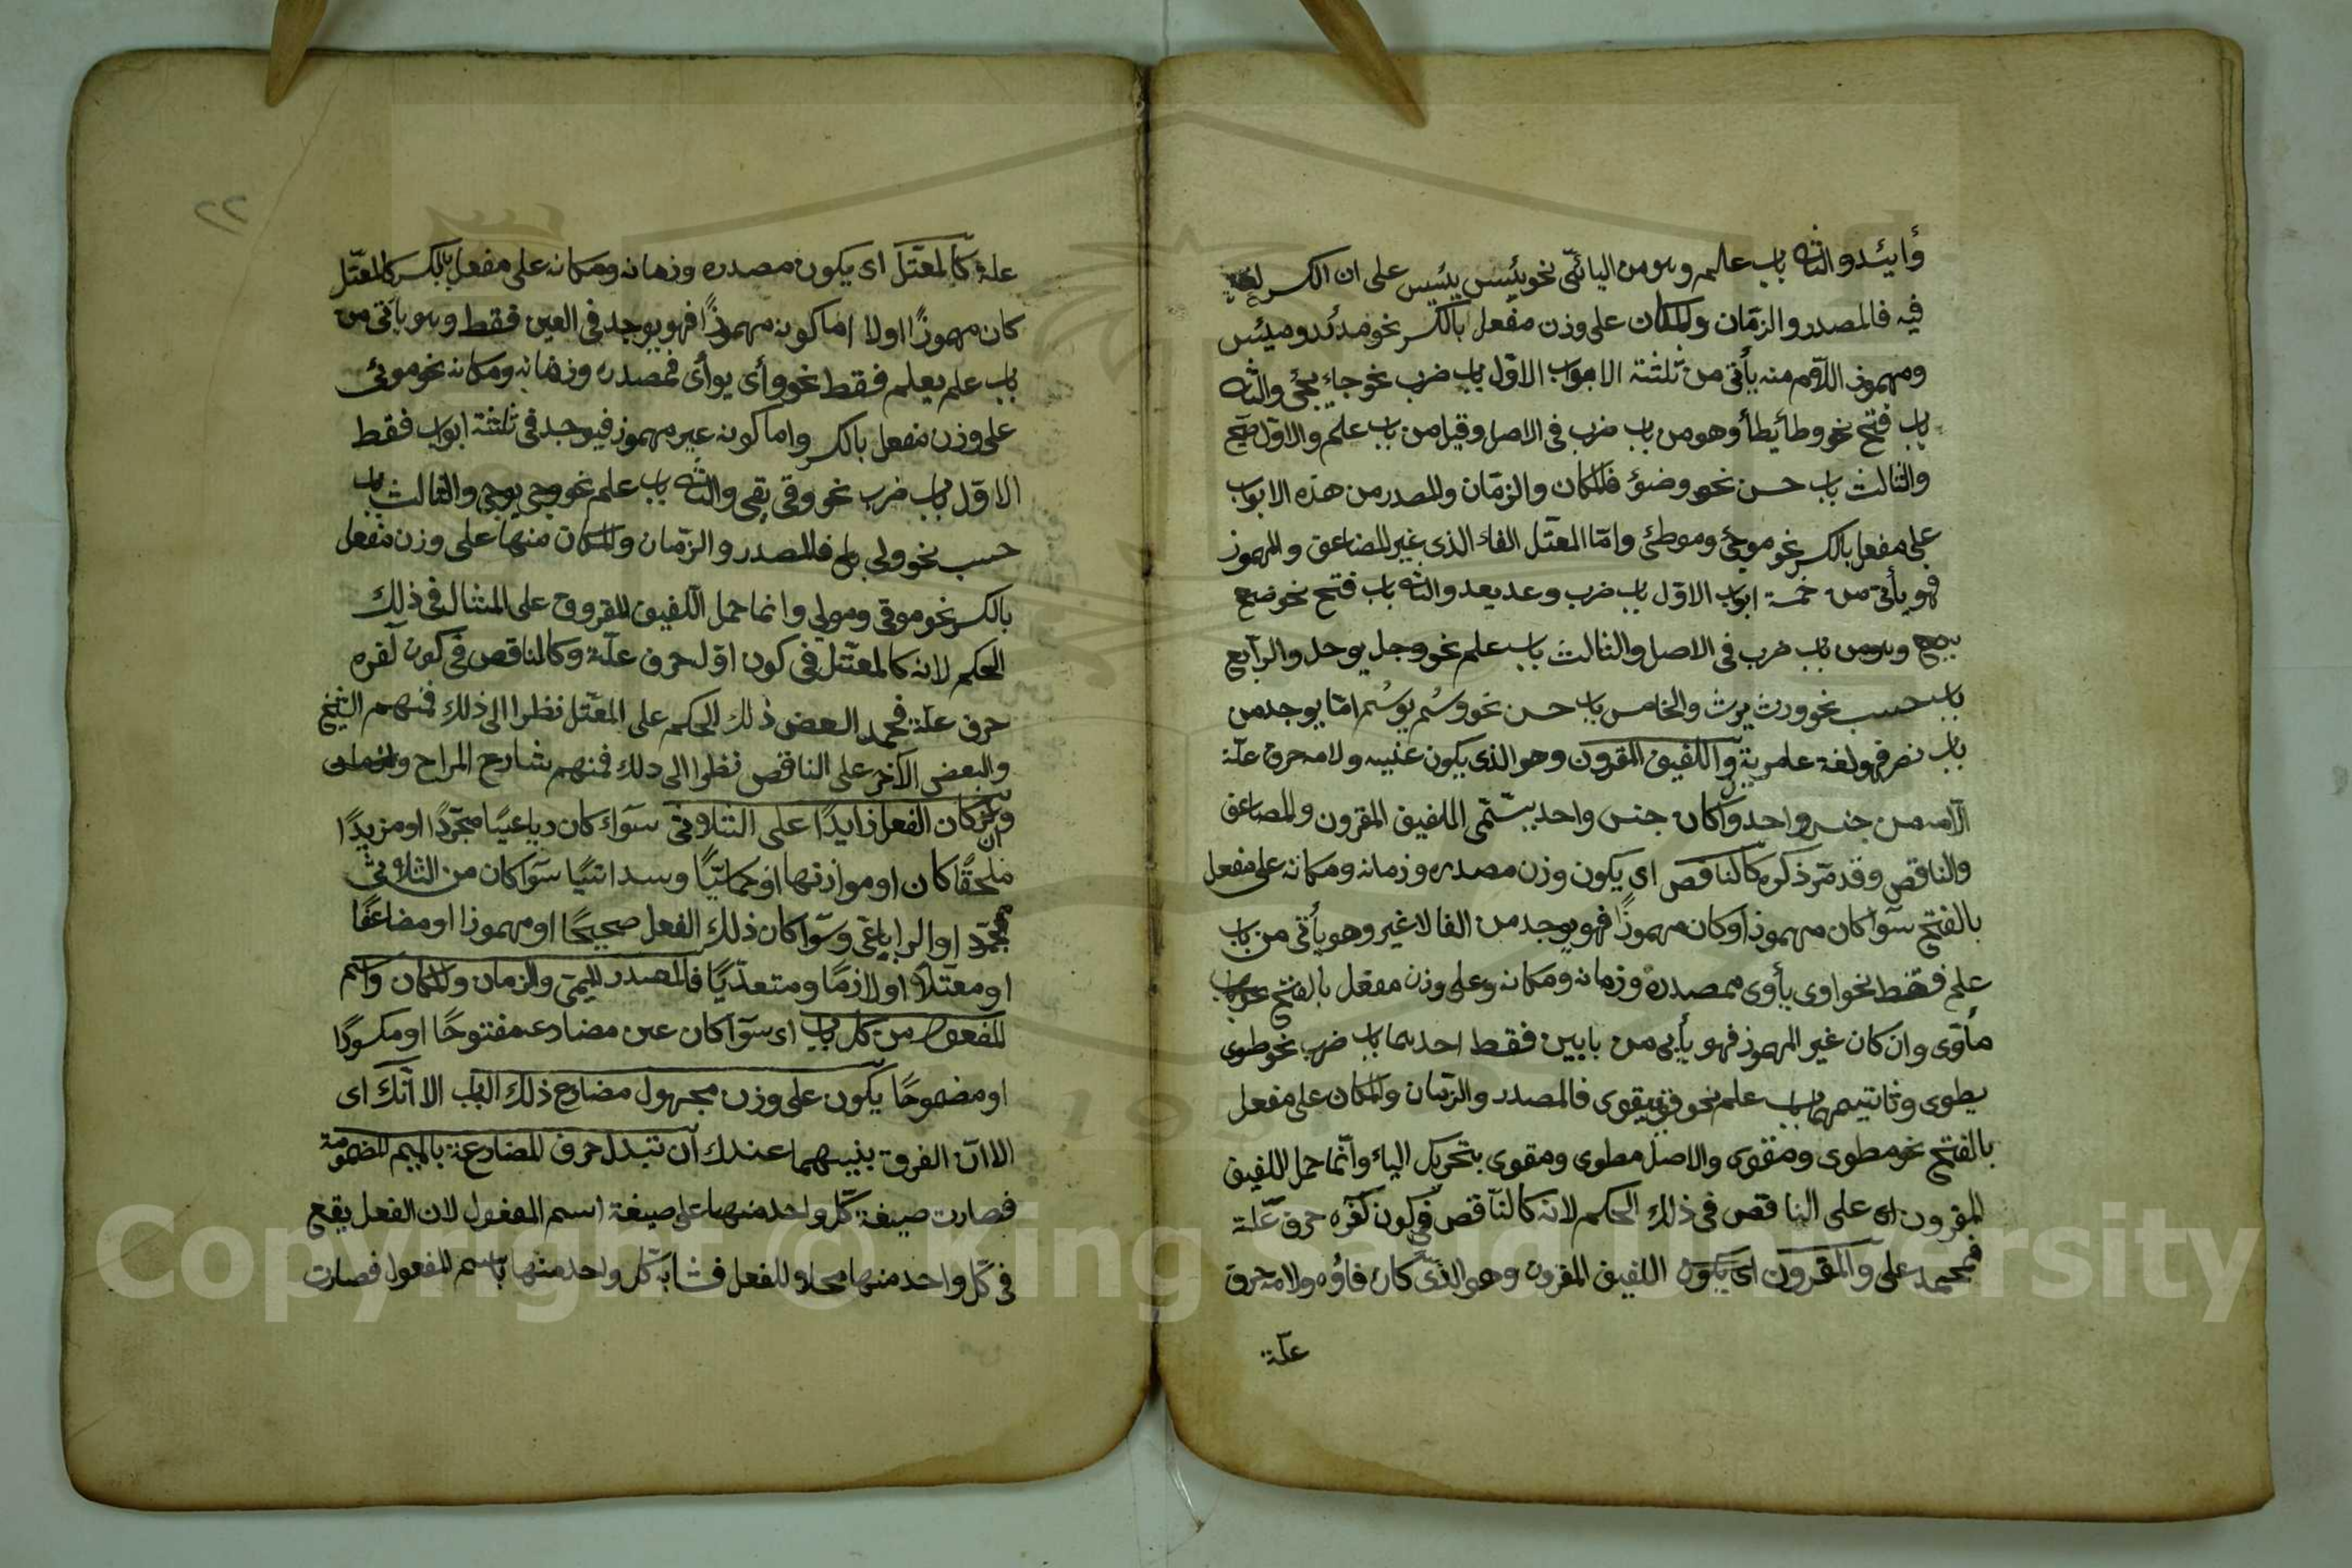 وأيئد والثانى باب علم وهو من اليائى نحو يئس ييئس على ان الكسر لغة
فيه فالمصدر والزمان والمكان على وزن مفعل بالكسر نحو موئد وميئس
ومهموز اللام منه يأتى من ثلثة الابواب الاول باب ضرب نحو جاء يجئ والثانى
باب فتح نحو وطأ يطأ وهو من باب ضرب فى الاصل وقيل من باب علم والاول صحيح
والثالث باب حسن نحو وضؤ فالمكان والزمان والمصدر من هذه الابواب
على مفعل بالكسر نحو موجئ وموطئ واما المعتل الفاء الذى غير المضاعف والمهموز
فهو يأتى من خمسة ابواب الاول باب ضرب وعد يعد والثانى باب فتح نحو وضع
يضع وهو من باب ضرب فى الاصل والثالث باب علم نحو وجل يوجل والرابع
باب حسب نحو ورث يرث والخامس باب حسن نحو وسُم يوسُم امّا يوجد من
باب نصر فهو لغة عامرية واللفيف المقرون وهو الذى يكون عينه ولامه حرف علّة
من جنس واحد وان كان جنس واحد يسمّى اللفيف المقرون والمضاعف
والناقص وقد مرّ ذكره كالناقص اى يكون وزن مصدره وزمانه ومكانه على مفعل
بالفتح سوآ كان مهموز او كان مهموزًا فهو يوجد من الفا لا غير وهو يأتى من باب
علم فقط نحو اوى يأوى فمصدره وزمانه ومكانه وعلى وزن مفعل بالفتح نحو
مأوى وان كان غير المهموز فهو يأتى من بابين فقط احدهما باب ضرب نحو طوى
يطوى وثانيهما باب علم نحو قوى يقوى فالمصدر والزمان والمكان على مفعل
بالفتح نحو مطوى ومقوى والاصل مطوى ومقوى بتحريك الياء وانّما حمل اللفيف
المقرون على الناقص فى ذلك الحكم لانه كالناقص فى كون آخره حرف علّة
فحمد على والمقرون اى يكون اللفيف المقرون وهو الذى كان فاؤه ولامه حرف
علّة
٢٢
علة كالمعتلّ اى يكون مصدره وزمانه ومكانه على مفعل بالكسر كالمعتل
كان مهموزًا اولا اما كونه مهموزًا فهو يوجد فى العين فقط وهو يأتى من
باب علم يعلم فقط نحو وأى يوأى فمصدره وزمانه ومكانه نحو موئى
على وزن مفعل بالكسر واما كونه غير مهموز فيوجد فى ثلثة ابواب فقط
الاوّل باب ضرب نحو وقى يقى والثانى باب علم نحو وجى يوجى والثالث باب
حسب نحو ولى يلى فالمصدر والزمان والمكان منها على وزن مفعل
بالكسر نحو موقى ومولى وانما حمل اللفيف المفروق على المثال فى ذلك
الحكم لانه كالمعتل فى كون اوّله حرف علّة وكالناقص فى كون آخره
حرف علّة فحمد البعض ذلك الحكم على المعتل نظرا الى ذلك فمنهم الشيخ
والبعض الآخر على الناقص نظرا الى ذلك فمنهم شارح المراح
وان كان الفعل زايدًا على الثلاثى سوآء كان رباعيًا مجرّدًا او مزيدًا
ملحقًا كان او موازنها او خماسيًّا وسداسيًا سوآ كان من الثلاثى
مجرّد او الرباعى وسوآ كان ذلك الفعل صحيحًا او مهموزا او مضاعفًا
او معتلاً او لازمًا ومتعدّيًا فالمصدر الميمى والزمان والمكان واسم
المفعول من كل باب اى سوآ كان عين مضارعه مفتوحًا او مكسورًا
او مضمومًا يكون على وزن مجهول مضارع ذلك الباب الا انّك اى
الا انّ الفرق بينهما عندك ان تبدل حرف المضارعة بالميم المضمومة
فصارت صيغة كلّ واحد منها على صيغة اسم المفعول لان الفعل يقع
فى كلّ واحد منها محلا للفعل فشابه كل واحد منها باسم المفعول فصارت
Copyright © King Saud University